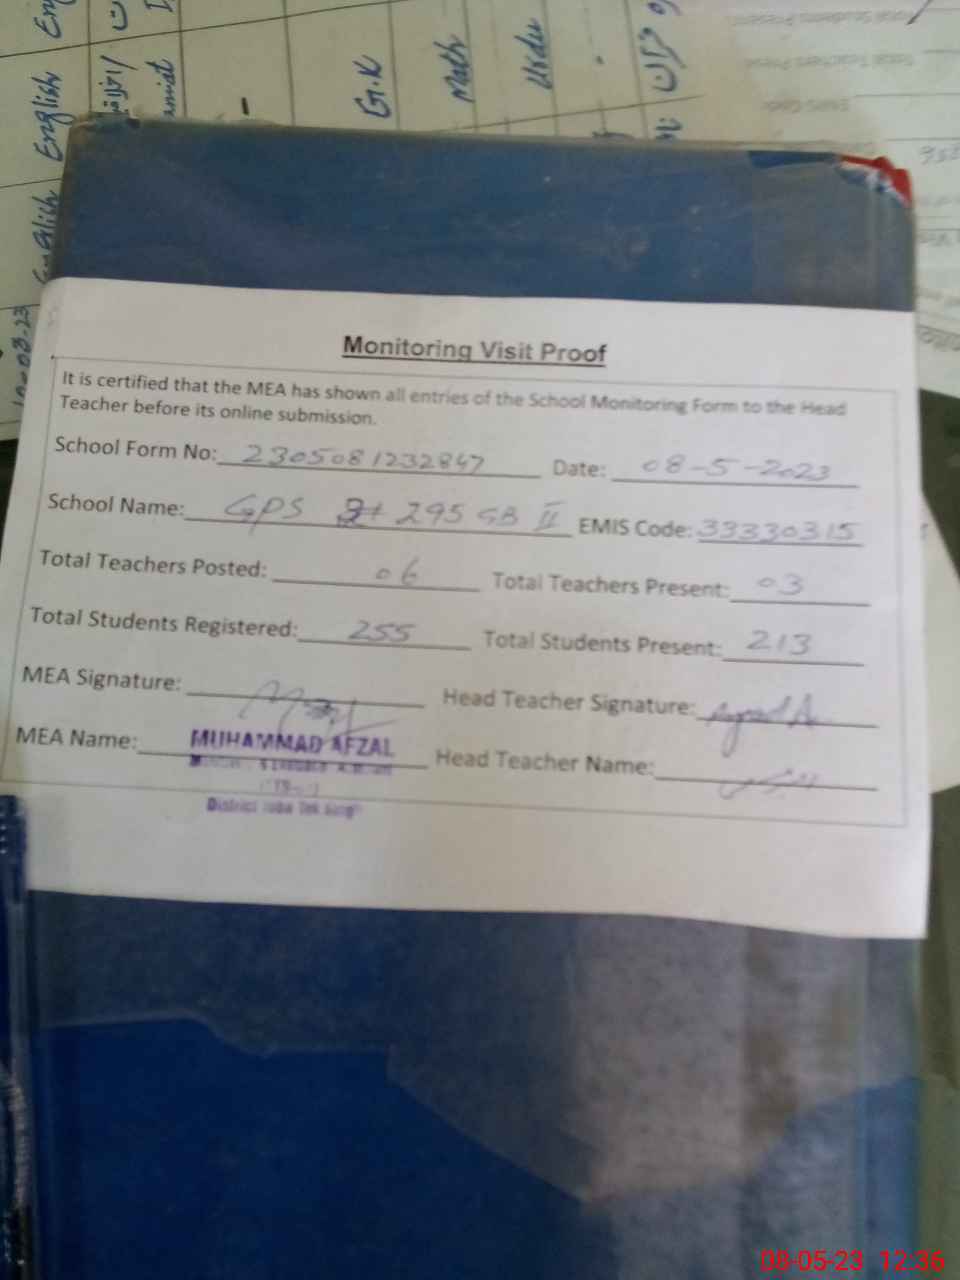 English
English
English
G.K
Math
Urdu
Monitoring Visit Proof
It is certified that the MEA has shown all entries of the School Monitoring Form to the Head
Teacher before its online submission.
School Form No: 2305081232847 Date: 08-5-2023
School Name: GPS 295 GB II EMIS Code: 33330315
Total Teachers Posted: 06 Total Teachers Present: 03
Total Students Registered: 255 Total Students Present: 213
MEA Signature: Head Teacher Signature:
MEA Name: MUHAMMAD AFZAL Head Teacher Name:
District Toba Tek Singh
08-05-23 12:36